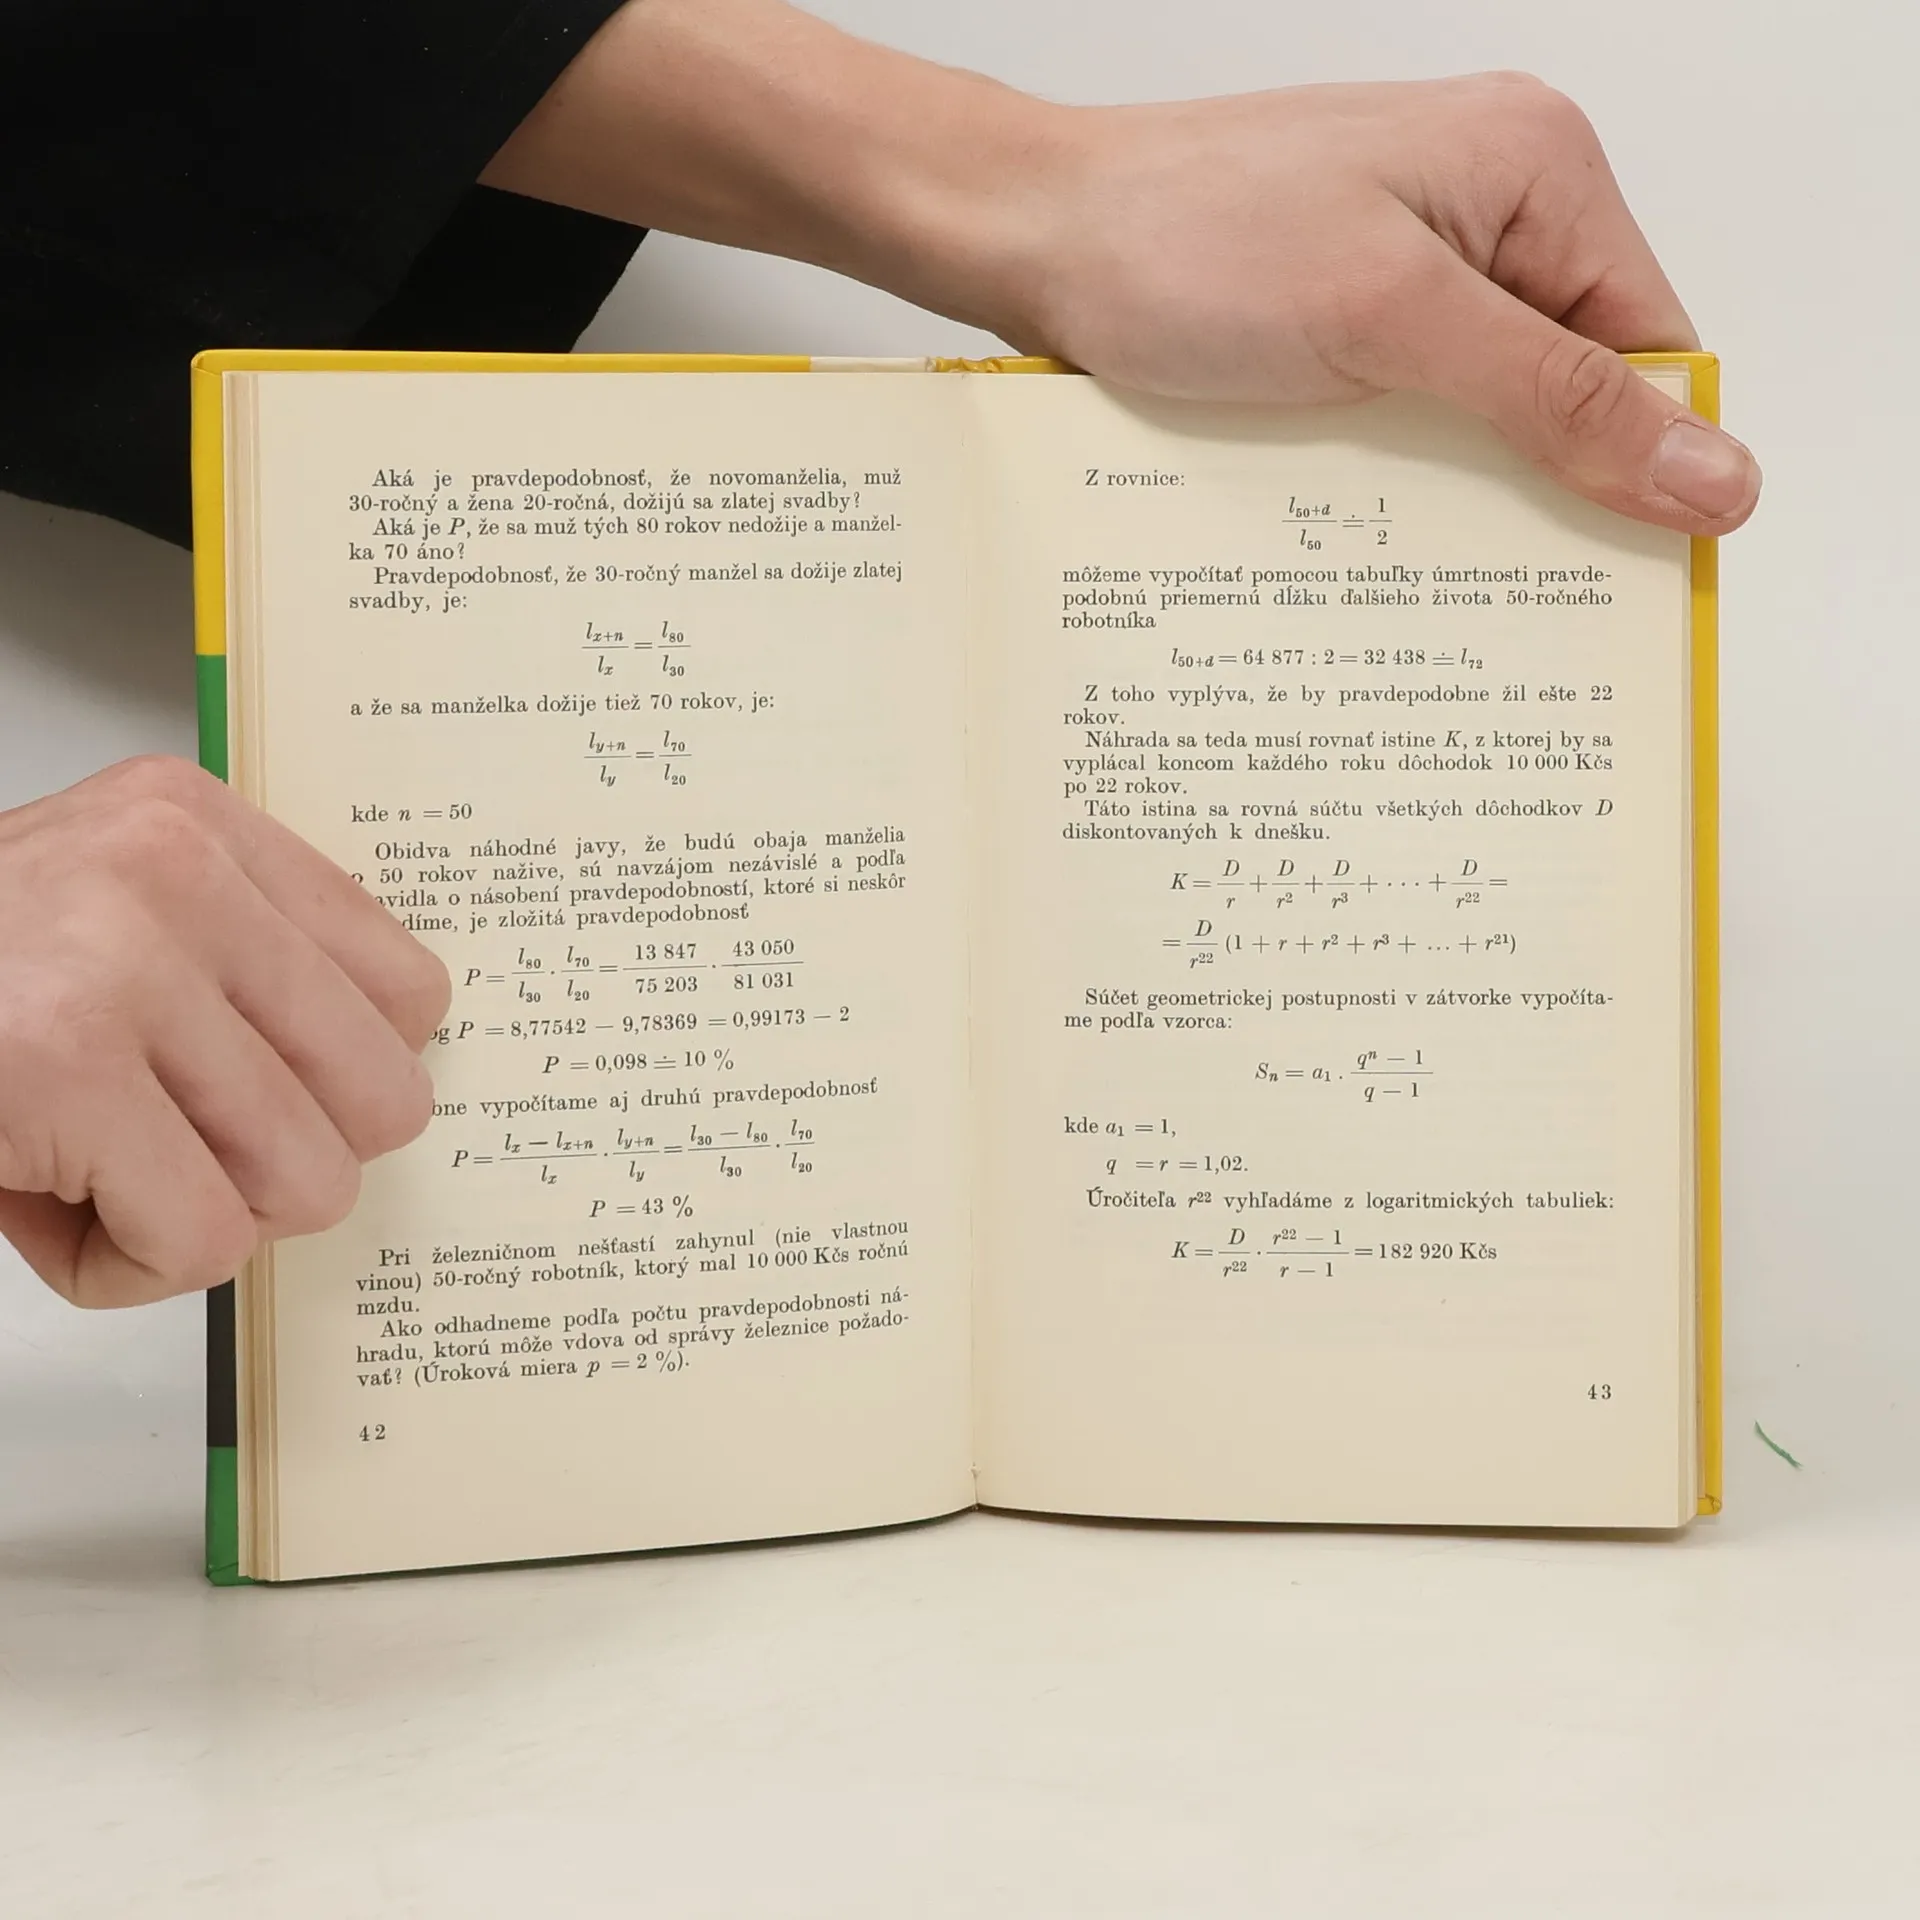 Aká je pravdepodobnosť, že novomanželia, muž
30-ročný a žena 20-ročná, dožijú sa zlatej svadby?
Aká je P, že sa muž tých 80 rokov nedožije a manžel-
ka 70 áno?
Pravdepodobnosť, že 30-ročný manžel sa dožije zlatej
svadby, je:
l_{x+n}/l_x = l_{80}/l_{30}
a že sa manželka dožije tiež 70 rokov, je:
l_{y+n}/l_y = l_{70}/l_{20}
kde n = 50
Obidva náhodné javy, že budú obaja manželia
50 rokov nažive, sú navzájom nezávislé a podľa
o násobení pravdepodobností, ktoré si neskôr
je zložitá pravdepodobnosť
P = l_{80}/l_{30} . l_{70}/l_{20} = 13 847/75 203 . 43 050/81 031
P = 8,77542 — 9,78369 = 0,99173 — 2
P = 0,098 ≐ 10 %
vypočítame aj druhú pravdepodobnosť
P = (l_x — l_{x+n})/l_x . l_{y+n}/l_y = (l_{30} — l_{80})/l_{30} . l_{70}/l_{20}
P = 43 %
Pri železničnom nešťastí zahynul (nie vlastnou
vinou) 50-ročný robotník, ktorý mal 10 000 Kčs ročnú
mzdu.
Ako odhadneme podľa počtu pravdepodobnosti ná-
hradu, ktorú môže vdova od správy železnice požado-
vať? (Úroková miera p = 2 %).
42
Z rovnice:
l_{50+d}/l_{50} ≐ 1/2
môžeme vypočítať pomocou tabuľky úmrtnosti pravde-
podobnú priemernú dĺžku ďalšieho života 50-ročného
robotníka
l_{50+d} = 64 877 : 2 = 32 438 ≐ l_{72}
Z toho vyplýva, že by pravdepodobne žil ešte 22
rokov.
Náhrada sa teda musí rovnať istine K, z ktorej by sa
vyplácal koncom každého roku dôchodok 10 000 Kčs
po 22 rokov.
Táto istina sa rovná súčtu všetkých dôchodkov D
diskontovaných k dnešku.
K = D/r + D/r² + D/r³ + . . . + D/r²² =
= D/r²² (1 + r + r² + r³ + ... + r²¹)
Súčet geometrickej postupnosti v zátvorke vypočíta-
me podľa vzorca:
S_n = a₁ . (qⁿ — 1)/(q — 1)
kde a₁ = 1,
q = r = 1,02.
Úročiteľa r²² vyhľadáme z logaritmických tabuliek:
K = D/r²² . (r²² — 1)/(r — 1) = 182 920 Kčs
43